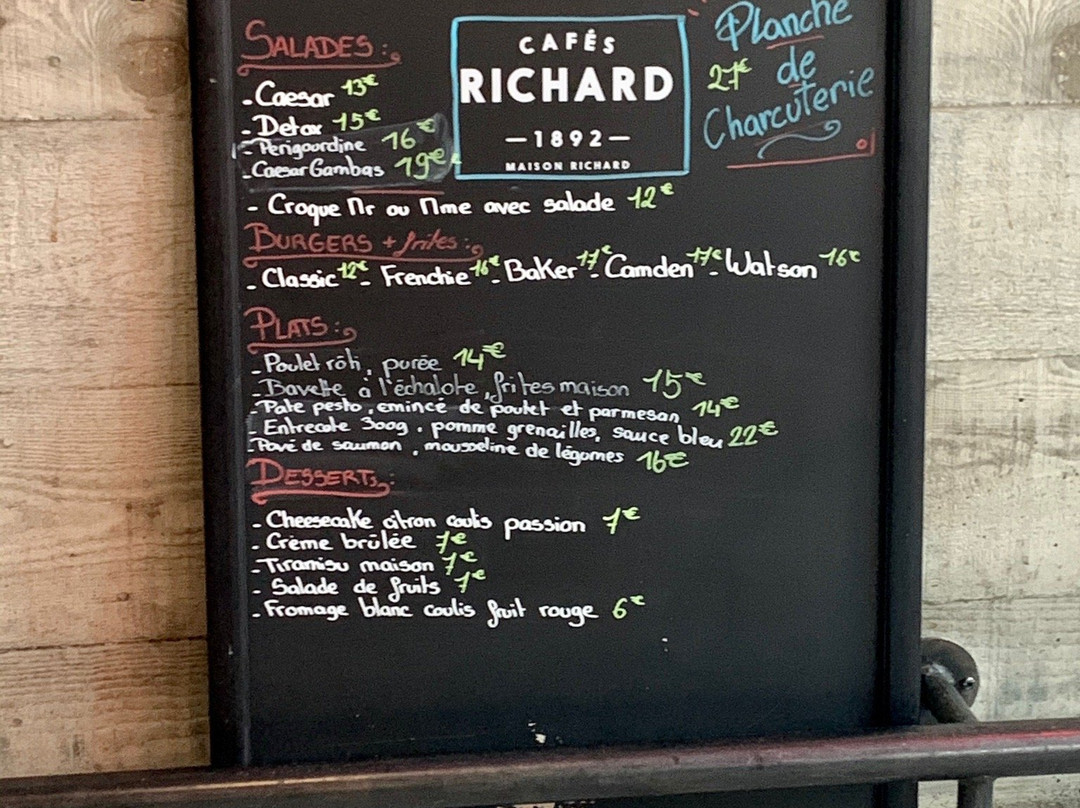 SALADES :
- Caesar 13€
- Detox 15€
- Périgourdine 16€
- Caesar Gambas 19€
CAFÉS
RICHARD
— 1892 —
MAISON RICHARD
Planche
27€ de
Charcuterie
- Croque Mr ou Mme avec salade 12€
BURGERS + frites :
- Classic 12€ - Frenchie 16€ - Baker 17€ - Camden 17€ - Watson 16€
PLATS :
- Poulet rôti, purée 14€
- Bavette à l'échalote, frites maison 15€
- Pate pesto, emincé de poulet et parmesan 14€
- Entrecote 300g, pomme grenailles, sauce bleu 22€
- Pavé de saumon, mousseline de légumes 16€
DESSERTS :
- Cheesecake citron coulis passion 7€
- Crème brûlée 7€
- Tiramisu maison 7€
- Salade de fruits 7€
- Fromage blanc coulis fruit rouge 6€